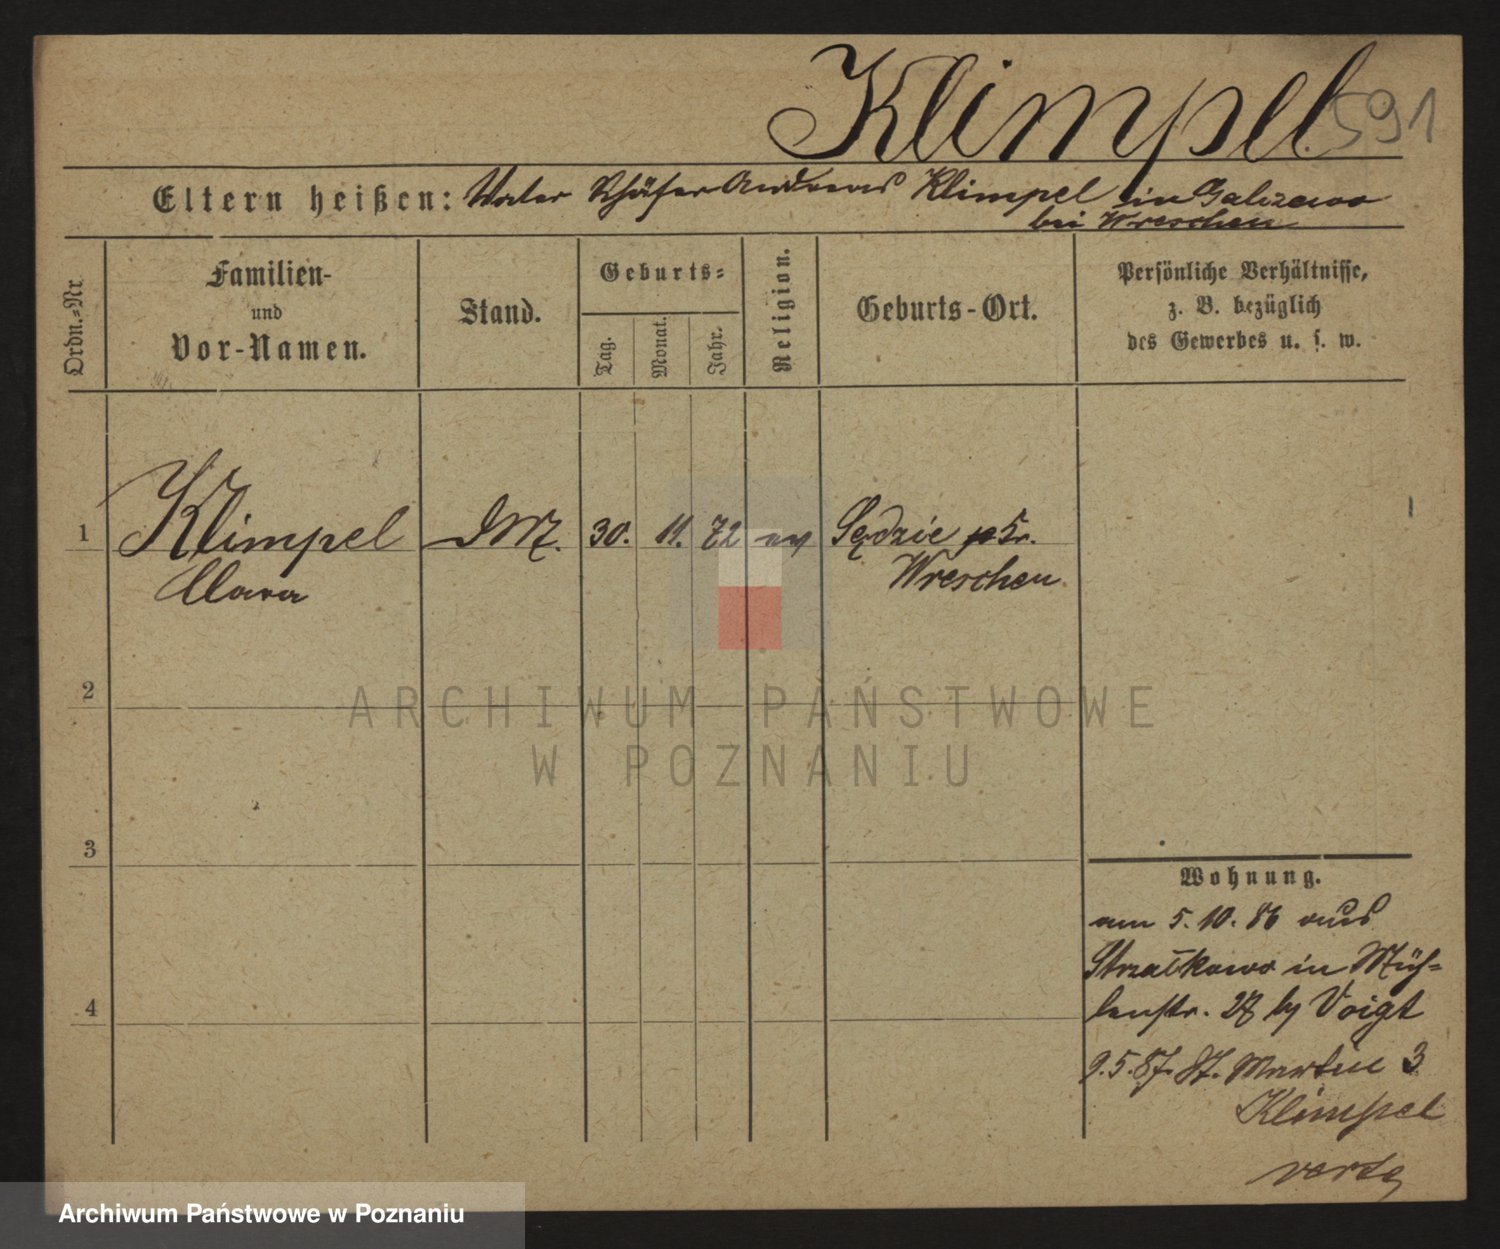 Klimpel
591
Eltern heißen: Vater Schäfer Andreas Klimpel in Gałczewo
bei Wreschen
Ordn.-Nr
Familien-
und
Vor-Namen.
Stand.
Geburts-
Tag.
Monat.
Jahr.
Religion.
Geburts-Ort.
Persönliche Verhältnisse,
z. B. bezüglich
des Gewerbes u. s. w.
1 Klimpel 30. 11. 72 ev Sędzie Kr.
Clara Wreschen
2
ARCHIWUM PAŃSTWOWE
W POZNANIU
3
4
Wohnung.
am 5. 10. 86 aus
Strzałkowo in Müh-
lenstr. 28 by Voigt
9.5.87. St. Martin 3
Klimpel
verte
Archiwum Państwowe w Poznaniu